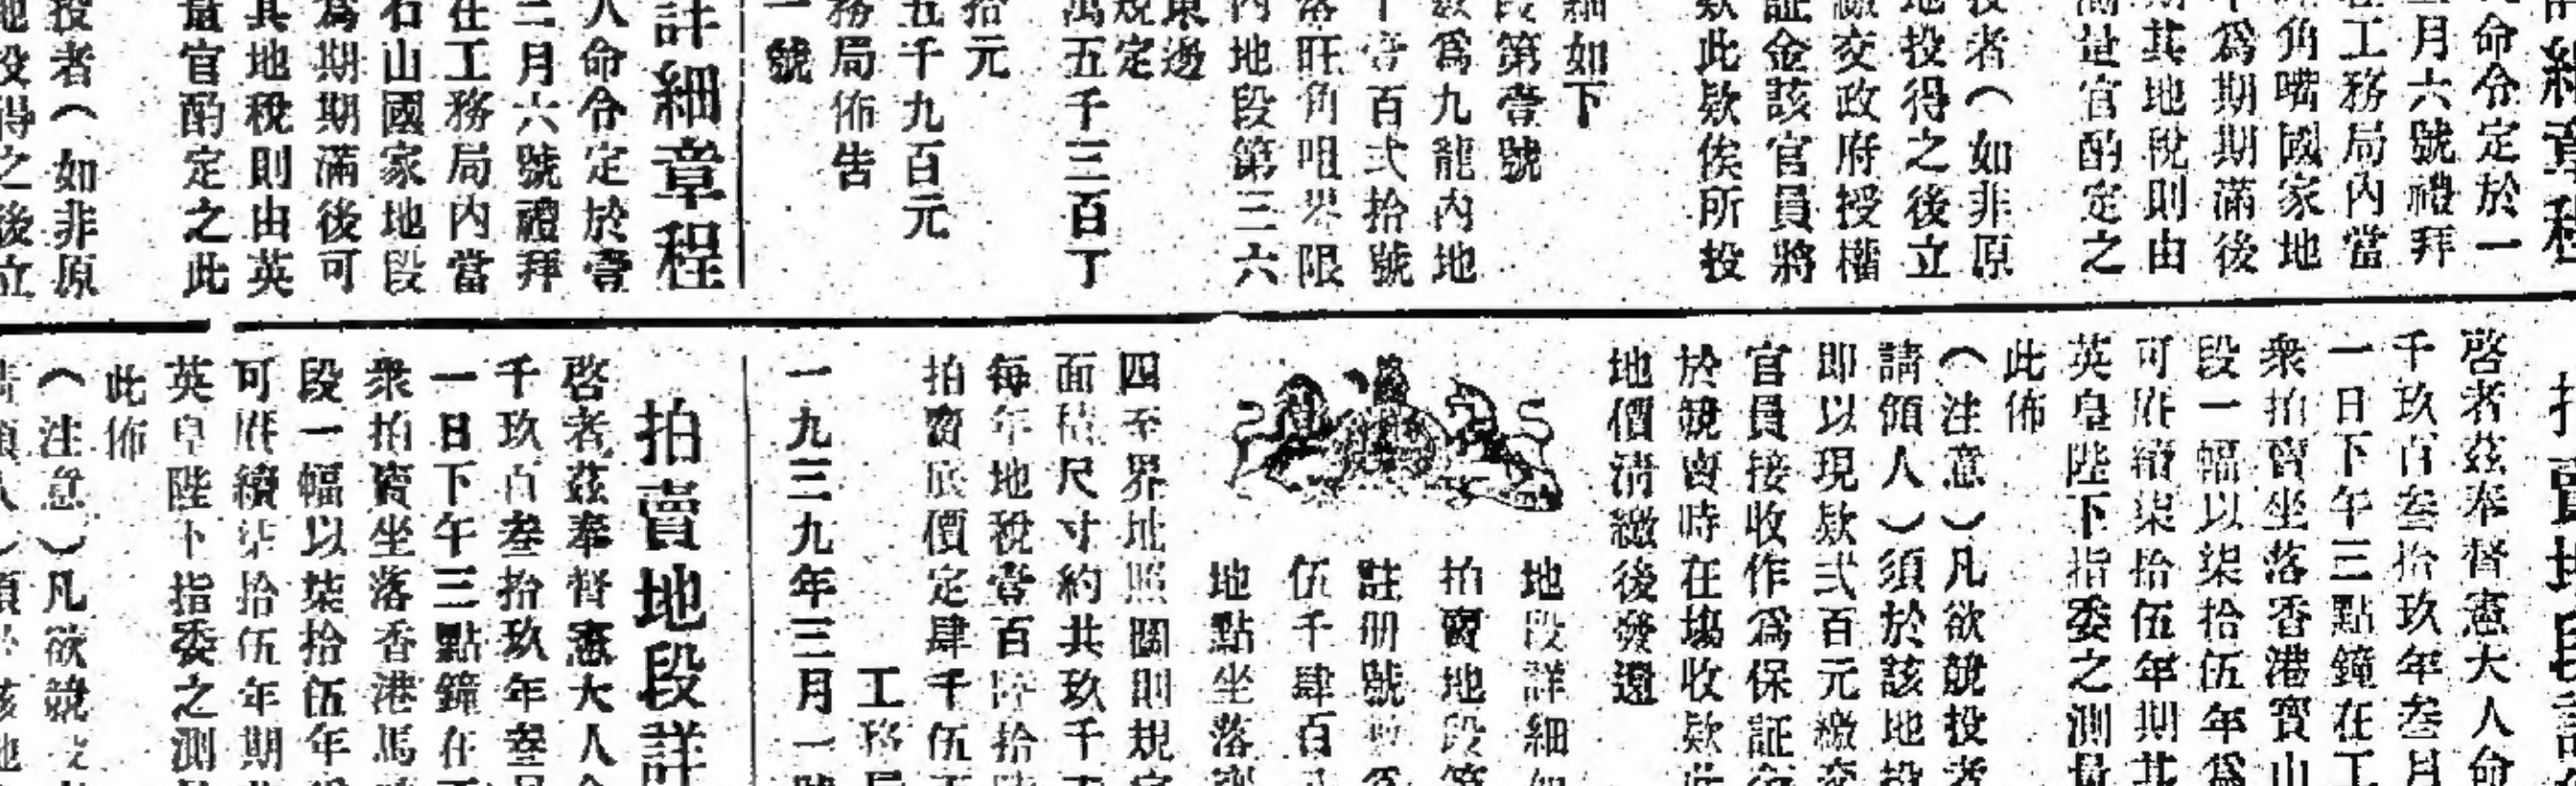 細章程
人命令定於一
月六號禮拜
工務局內當
角嘴國家地
爲期期滿後
期其地稅則由
量官酌定之
投者（如非原
地投得之後立
繳交政府授權
証金該官員將
欵此欵俟所投
細如下
段第壹號
數爲九龍內地
千壹百弍拾號
落旺角咀界限
內地段第三六
東邊
規定
萬五千三百丁
拾元
五千九百元
務局佈告
一號
詳細章程
人命令定於壹
三月六號禮拜
在工務局內當
石山國家地段
爲期期滿後可
其地稅則由英
量官酌定之此
投者（如非原
地投得之後立
拍賣地段詳
啓者茲奉督憲大人命
千玖百叁拾玖年叁月
一日下午三點鐘在工
衆拍賣坐落香港寳山
段一幅以柒拾伍年爲
可能續柒拾伍年期其
英皇陛下指委之測量
此佈
（注意）凡欲競投者
請領人）須於該地投
即以現欵弍百元繳交
官員接收作爲保証金
於競賣時在塲收欵此
地價清繳後發還
地段詳細如
拍賣地段第
註册號數爲
伍千肆百
地點坐落
四至界址照圖則規定
面積尺寸約共玖千
每年地稅壹百陸拾
拍賣底價定肆千伍百
工務局
一九三九年三月一號
拍賣地段詳
啓者茲奉督憲大人命
千玖百叁拾玖年叁月
一日下午三點鐘在工
衆拍賣坐落香港馬
段一幅以柒拾伍年爲
可能續柒拾伍年期其
英皇陛下指委之測量
此佈
（注意）凡欲競投
請領人）須於該地